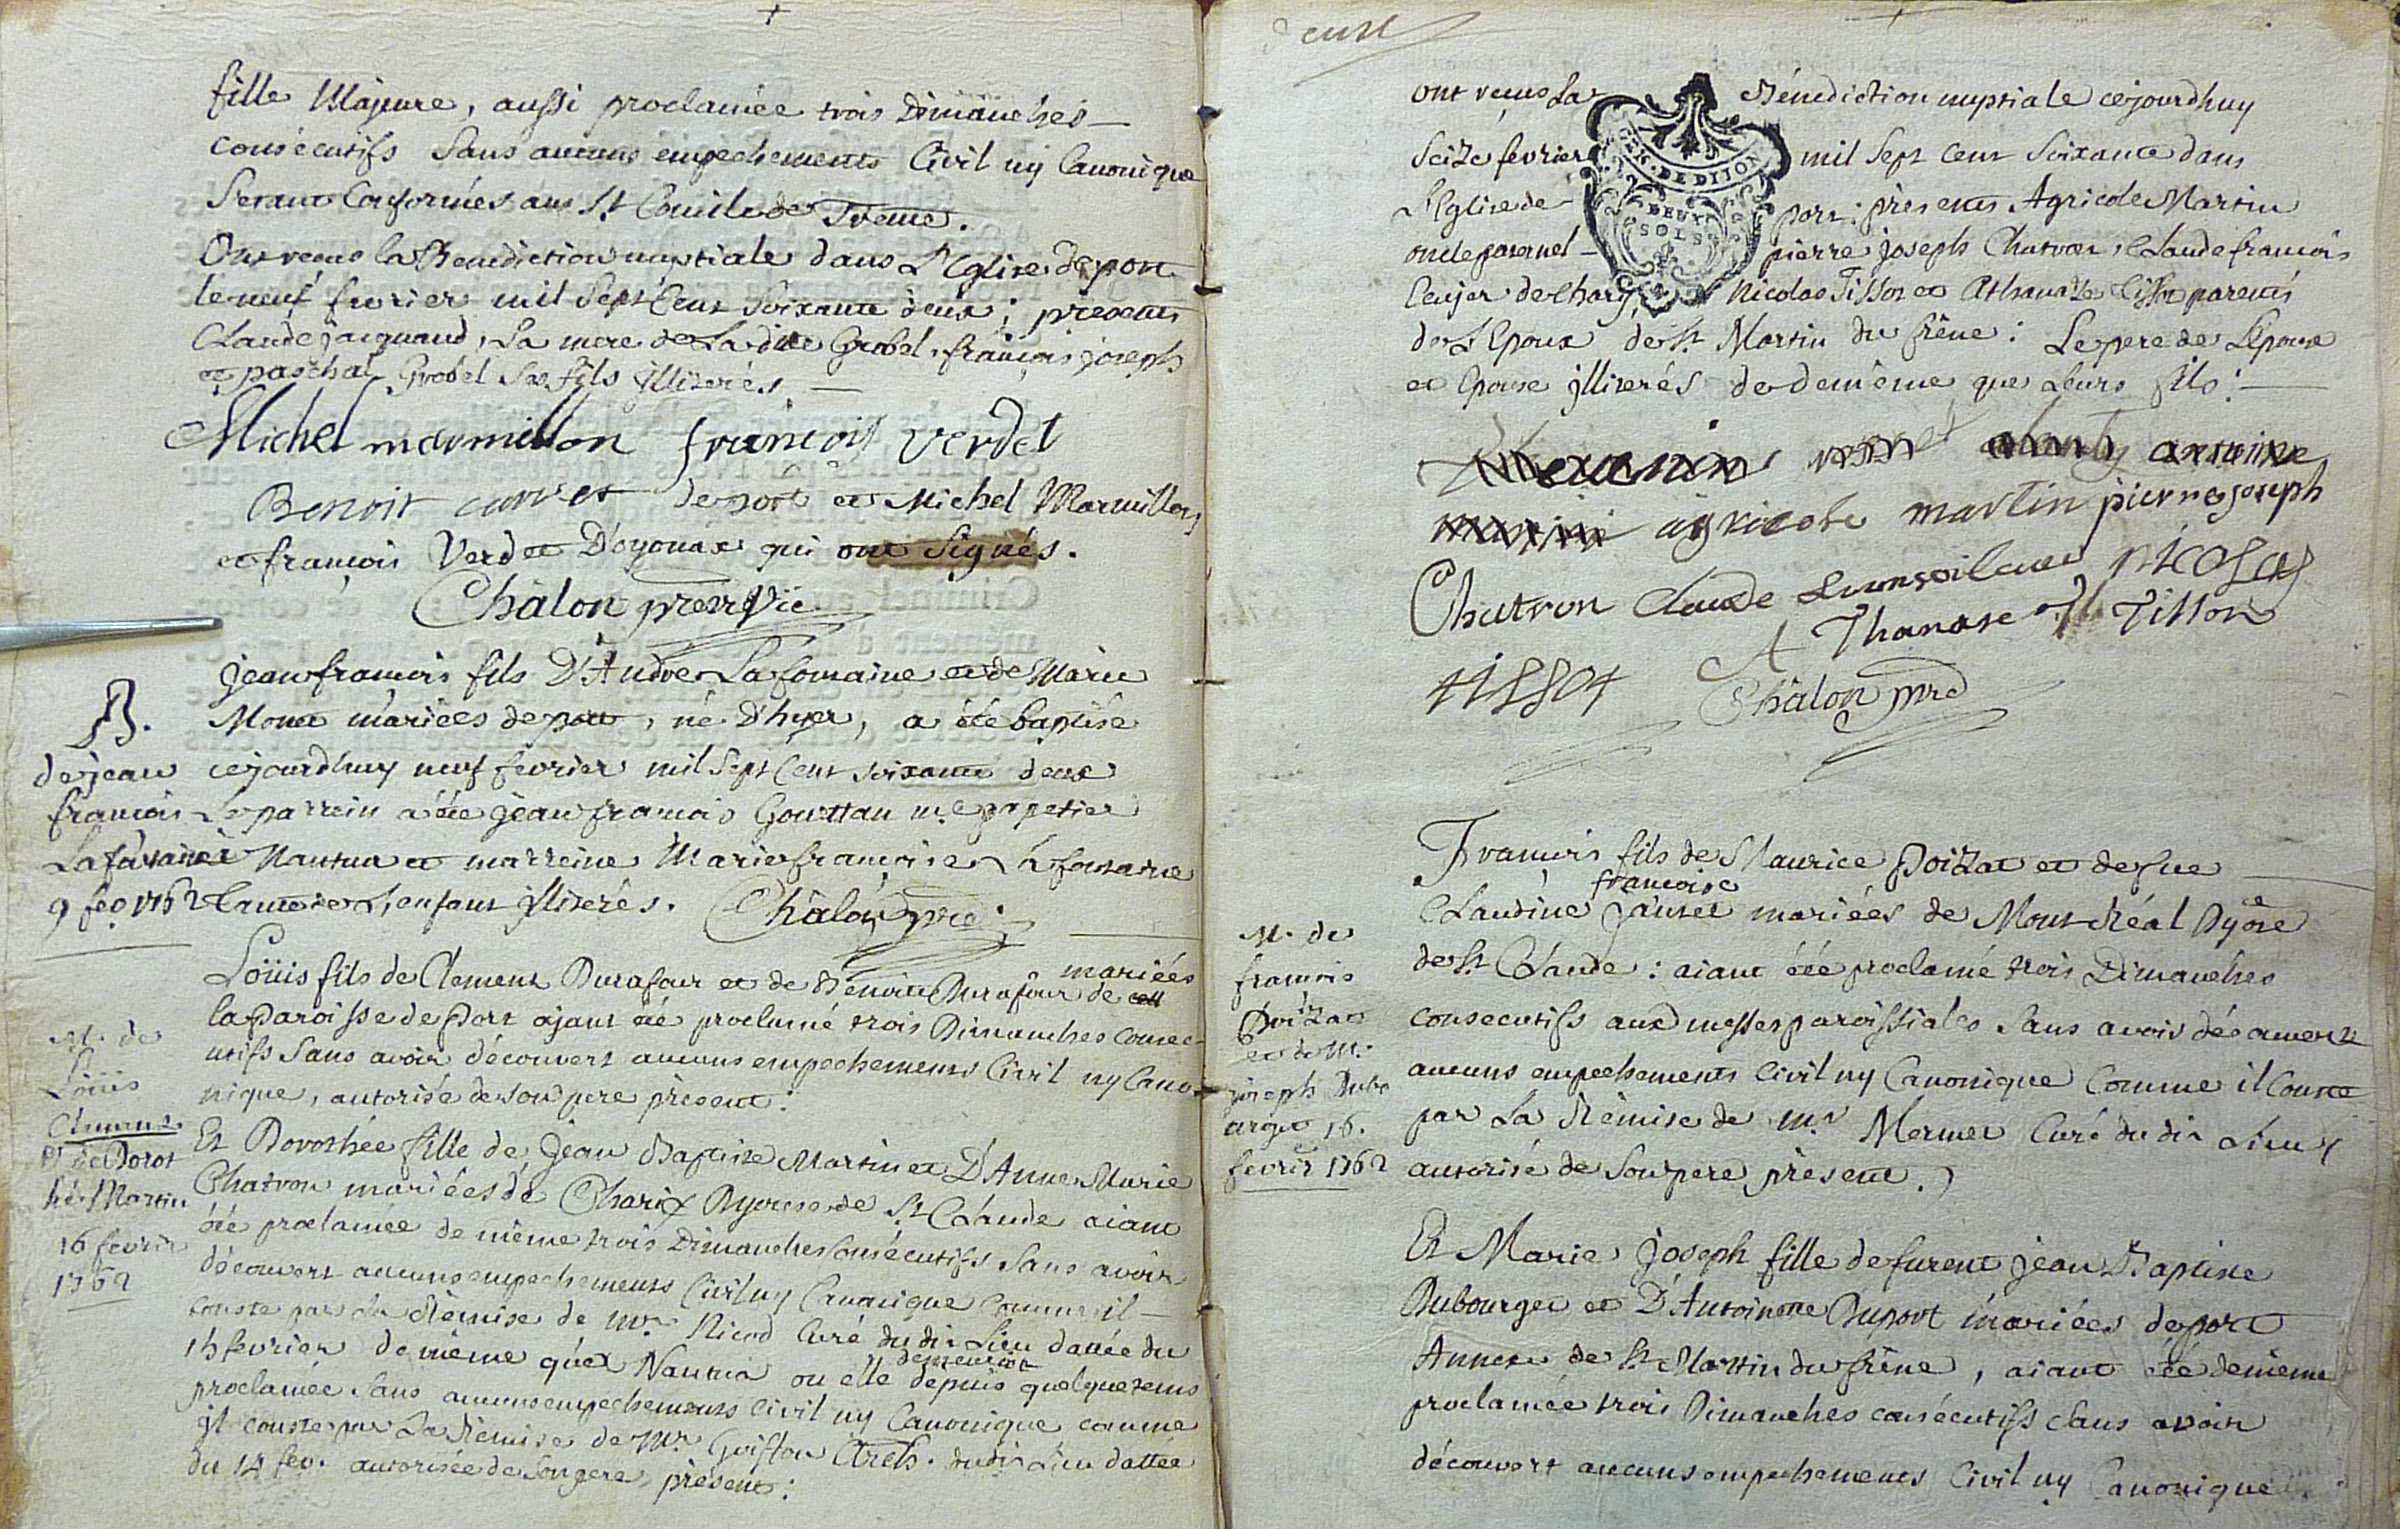 fille Majeure, aussi proclamée trois Dimanches
consécutifs Sans aucuns empechements Civil ny Canonique
Serant Conformés au St Concile de Trente.
Ont reçus la Benediction nuptiale dans L'Eglise de port
le neuf fevrier mil Sept Cent Soixante deux; presents
Claude jacquand, La mere de La dite Grobel, françois joseph
et paschal Grobel Ses fils jllitérés
Michel marmillon françois verdet
Benoit carret de port et Michel Marmillon
et françois Verdet D'oyonax qui ont Signés.
Châlon prerre Vic.
B.
de jean
francois
Lafontaine
9 fev 1762
jean françois fils D'André Lafontaine et de Marie
Monet mariées de port, né D'hyer, a été baptisé
cejourdhuy neuf fevrier mil Sept Cent soixante deux
Le parrein a été jean francois Gouttan me papetier
Nantua et marreine Marie françoise Lafontaine
tante de L'enfant jllitérés. Châlon pre.
M. de
Loüis
Clement
et de Dorot
hé Martin
16 fevrier
1762
Loüis fils de Clement Durafour et de Benoite Durafour mariées de
la paroisse de port ajant été proclamé trois Dimanches consec-
utifs Sans avoir découvert aucuns empechements Civil ny Cano-
nique, autorisé de son pere présent:
Et Dorothée fille de jean Baptiste Martin et D'Anne Marie
Chatron mariées de Charix Dyocese de St Claude aiant
été proclamée de même trois Dimanches Consécutifs Sans avoir
découvert aucuns empechements Civil ny Canonique comme il
conste par La Remise de Mr. Nicod Curé du dit Lieu dattée du
15 fevrier de même qu'a Nantua ou elle demeuroit depuis quelque tems
proclamée Sans aucuns empechements Civil ny Canonique comme
jl conste par La Remise de Mr Goiffon Arch. du dit Lieu dattée
du 14 fev. autorisée de Son pere présent:
ont reçus La Bénediction nuptiale cejourdhuy
Seize fevrier mil Sept Cent Soixante dans
L'Eglise de port: présents Agricole Martin
oncle paternel pierre joseph Chatron, Claude francois
de Charix, Nicolas Tissot et Athanaze Tissot parents
de L'Epoux de St Martin du frêne: Le pere de L'Epouse
et Epouse jllitérés de de même que Leurs fils:
GEN. DE DIJON
DEUX
SOLS
agricole martin pierre joseph
Chatron Claude nicolas
A Thanase Tissot
tissot Châlon pre
M. de
francois
Poizat
et de M.
joseph Dubo
urget 16.
fevrier 1762
Francois fils de Maurice Poizat et de fue
Claudine francoise Janet mariées de Mont Réal Dyose
de St Claude: aiant été proclamé trois Dimanches
consecutifs aux messes paroissiales Sans avoir découvert
aucuns empechements Civil ny Canonique Comme il Conste
par La Remise de Mr Mermet Curé du dit Lieu
autorisé de Son pere présent.
Et Marie joseph fille de furent jean Baptiste
Dubourget et D'Antoinette Duport mariées de port
Annexe de St Martin du frêne, aiant été de même
proclamée trois Dimanches consécutifs Sans avoir
découvert aucuns empechements Civil ny Canonique